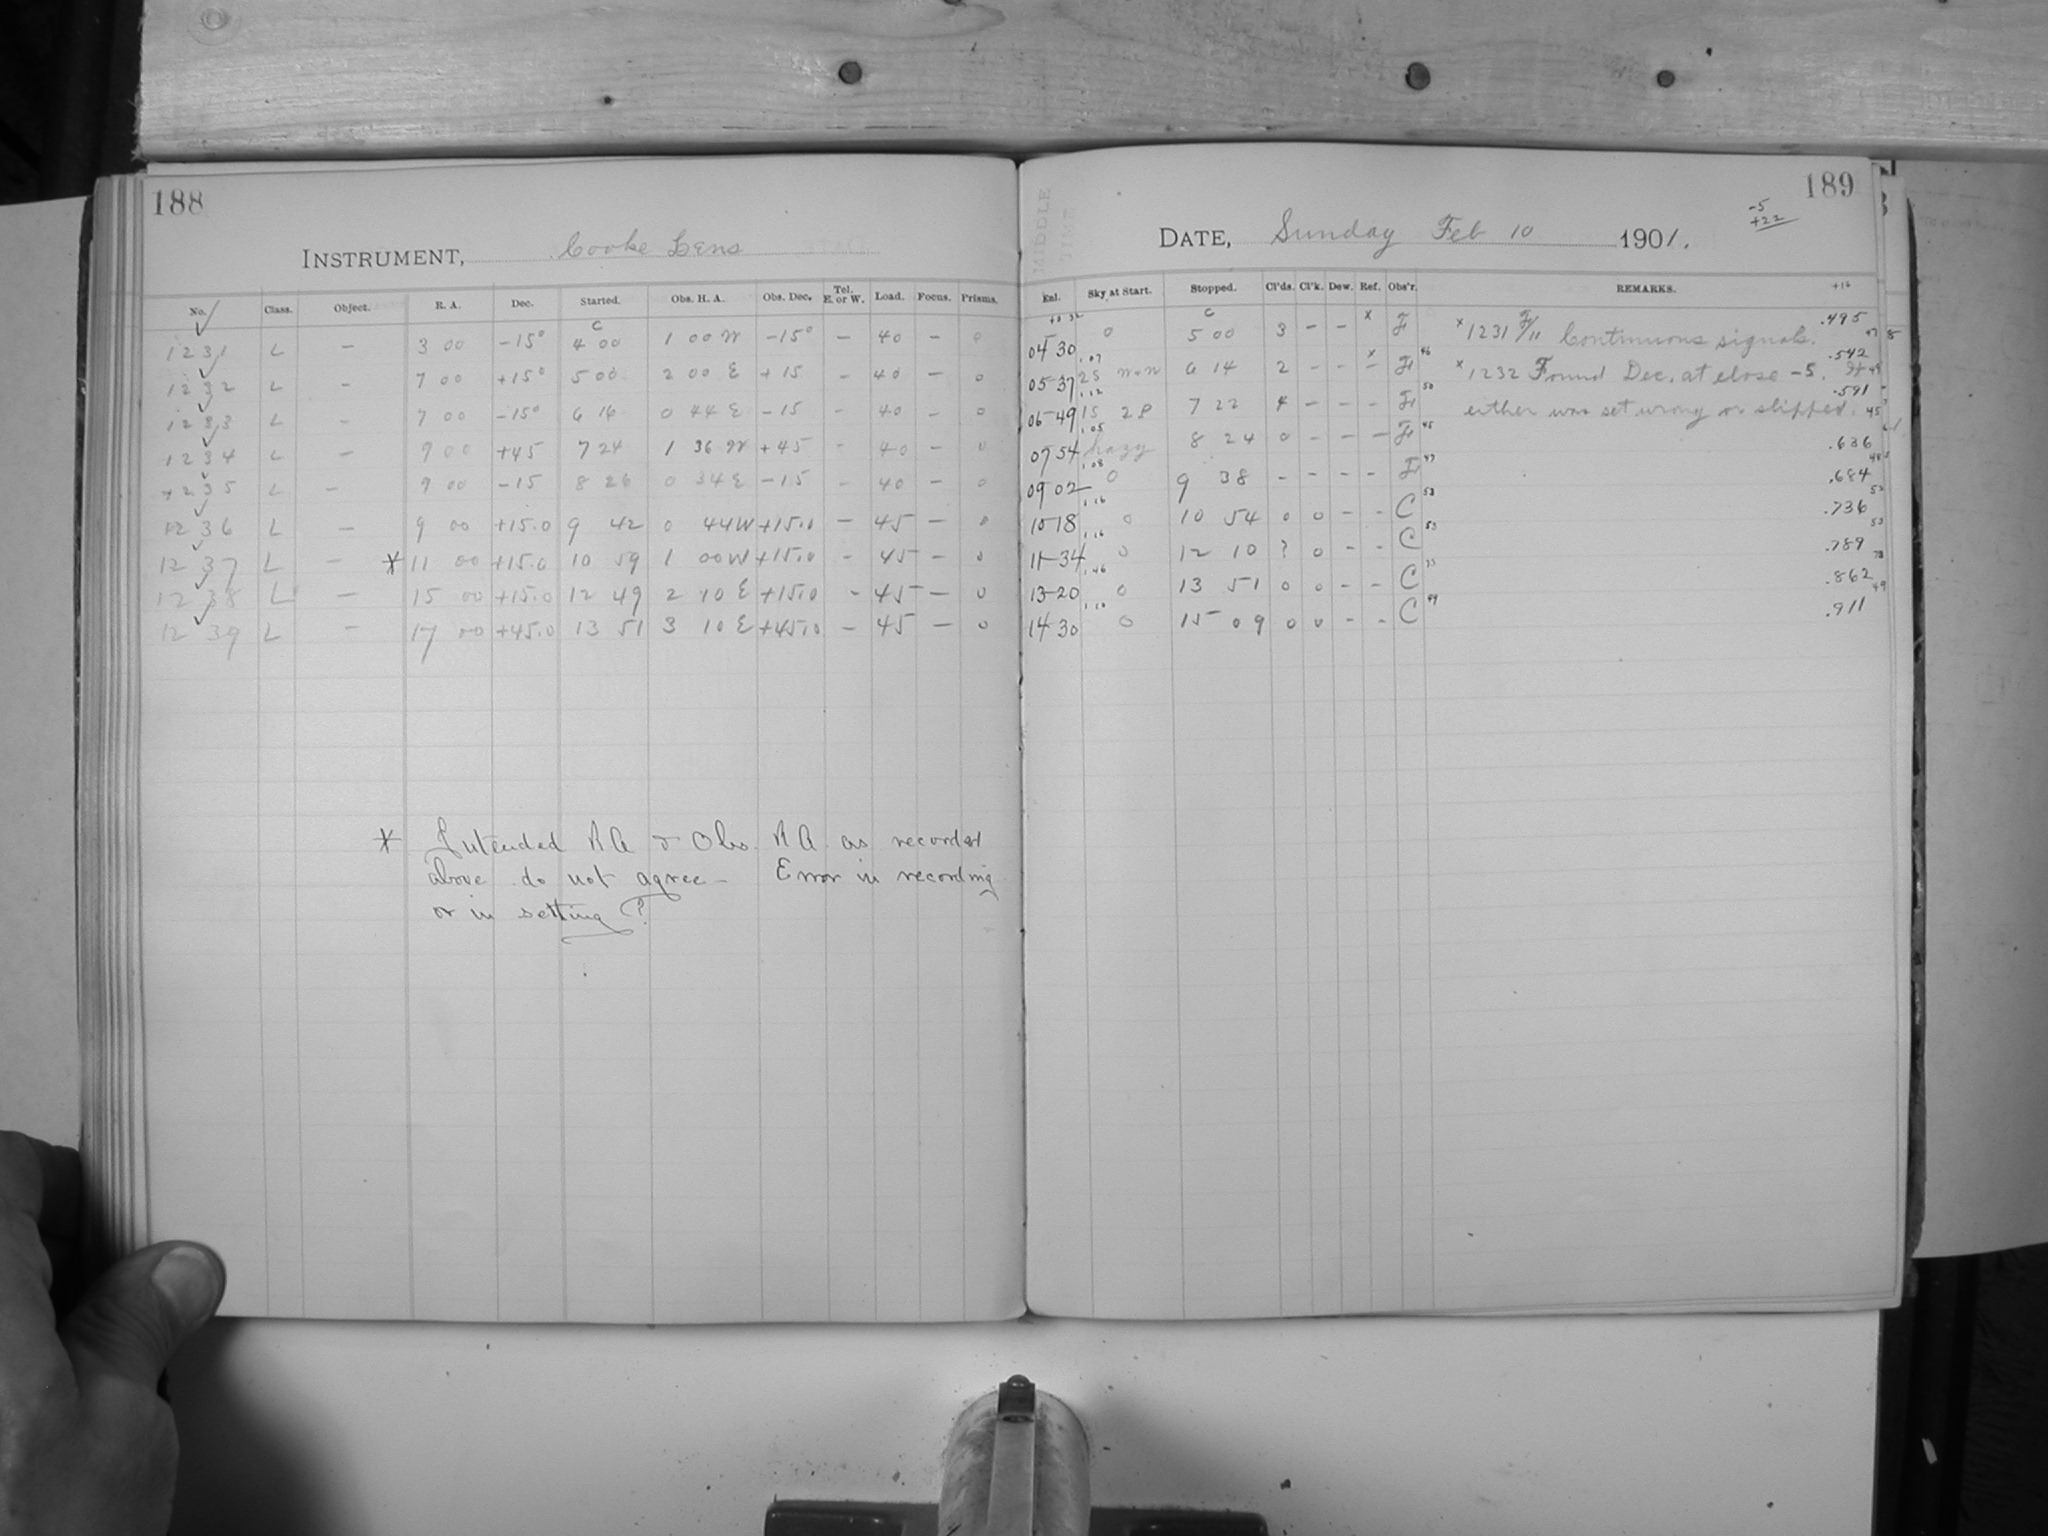 188
INSTRUMENT, Cooke Lens
No. Class. Object. R. A. Dec. Started. Obs. H. A. Obs. Dec. Tel. E. or W. Load. Focus. Prisms.
C
1231 L – 3 00 -15° 4 00 1 00 W -15° – 40 – 0
1232 L – 7 00 +15° 5 00 2 00 E +15 – 40 – 0
1233 L – 7 00 -15° 6 16 0 44 E -15 – 40 – 0
1234 L – 9 00 +45 7 24 1 36 W +45 – 40 – 0
1235 L – 9 00 -15 8 26 0 34 E -15 – 40 – 0
1236 L – 9 00 +15.0 9 42 0 44 W +15.0 – 45 – 0
1237 L – * 11 00 +15.0 10 59 1 00 W +15.0 – 45 – 0
1238 L – 15 00 +15.0 12 49 2 10 E +15.0 – 45 – 0
1239 L – 17 00 +45.0 13 51 3 10 E +45.0 – 45 – 0
* Intended RA & Obs. RA as recorded
above do not agree – Error in recording
or in setting?
189
-5
+22
DATE, Sunday Feb 10 1901.
Exl. Sky at Start. Stopped. Cl'ds. Cl'k. Dew. Ref. Obs'r. REMARKS. +16
C
04 30 0 5 00 3 – – x F x 1231 F/11 Continuous signals. .495
05 37 25 W-N 6 14 2 – – x F 46 x 1232 Found Dec. at close -5. It .542
06 49 15 28 7 22 4 – – – F 50 either was set wrong or slipped. .591
07 54 hazy 8 24 0 – – – F 45 .636
09 02 0 9 38 – – – – F 47 .684
10 18 0 10 54 0 0 – – C 53 .736
11 34 0 12 10 ? 0 – – C 53 .789
13 20 0 13 51 0 0 – – C .862
14 30 0 15 09 0 0 – – C 49 .911